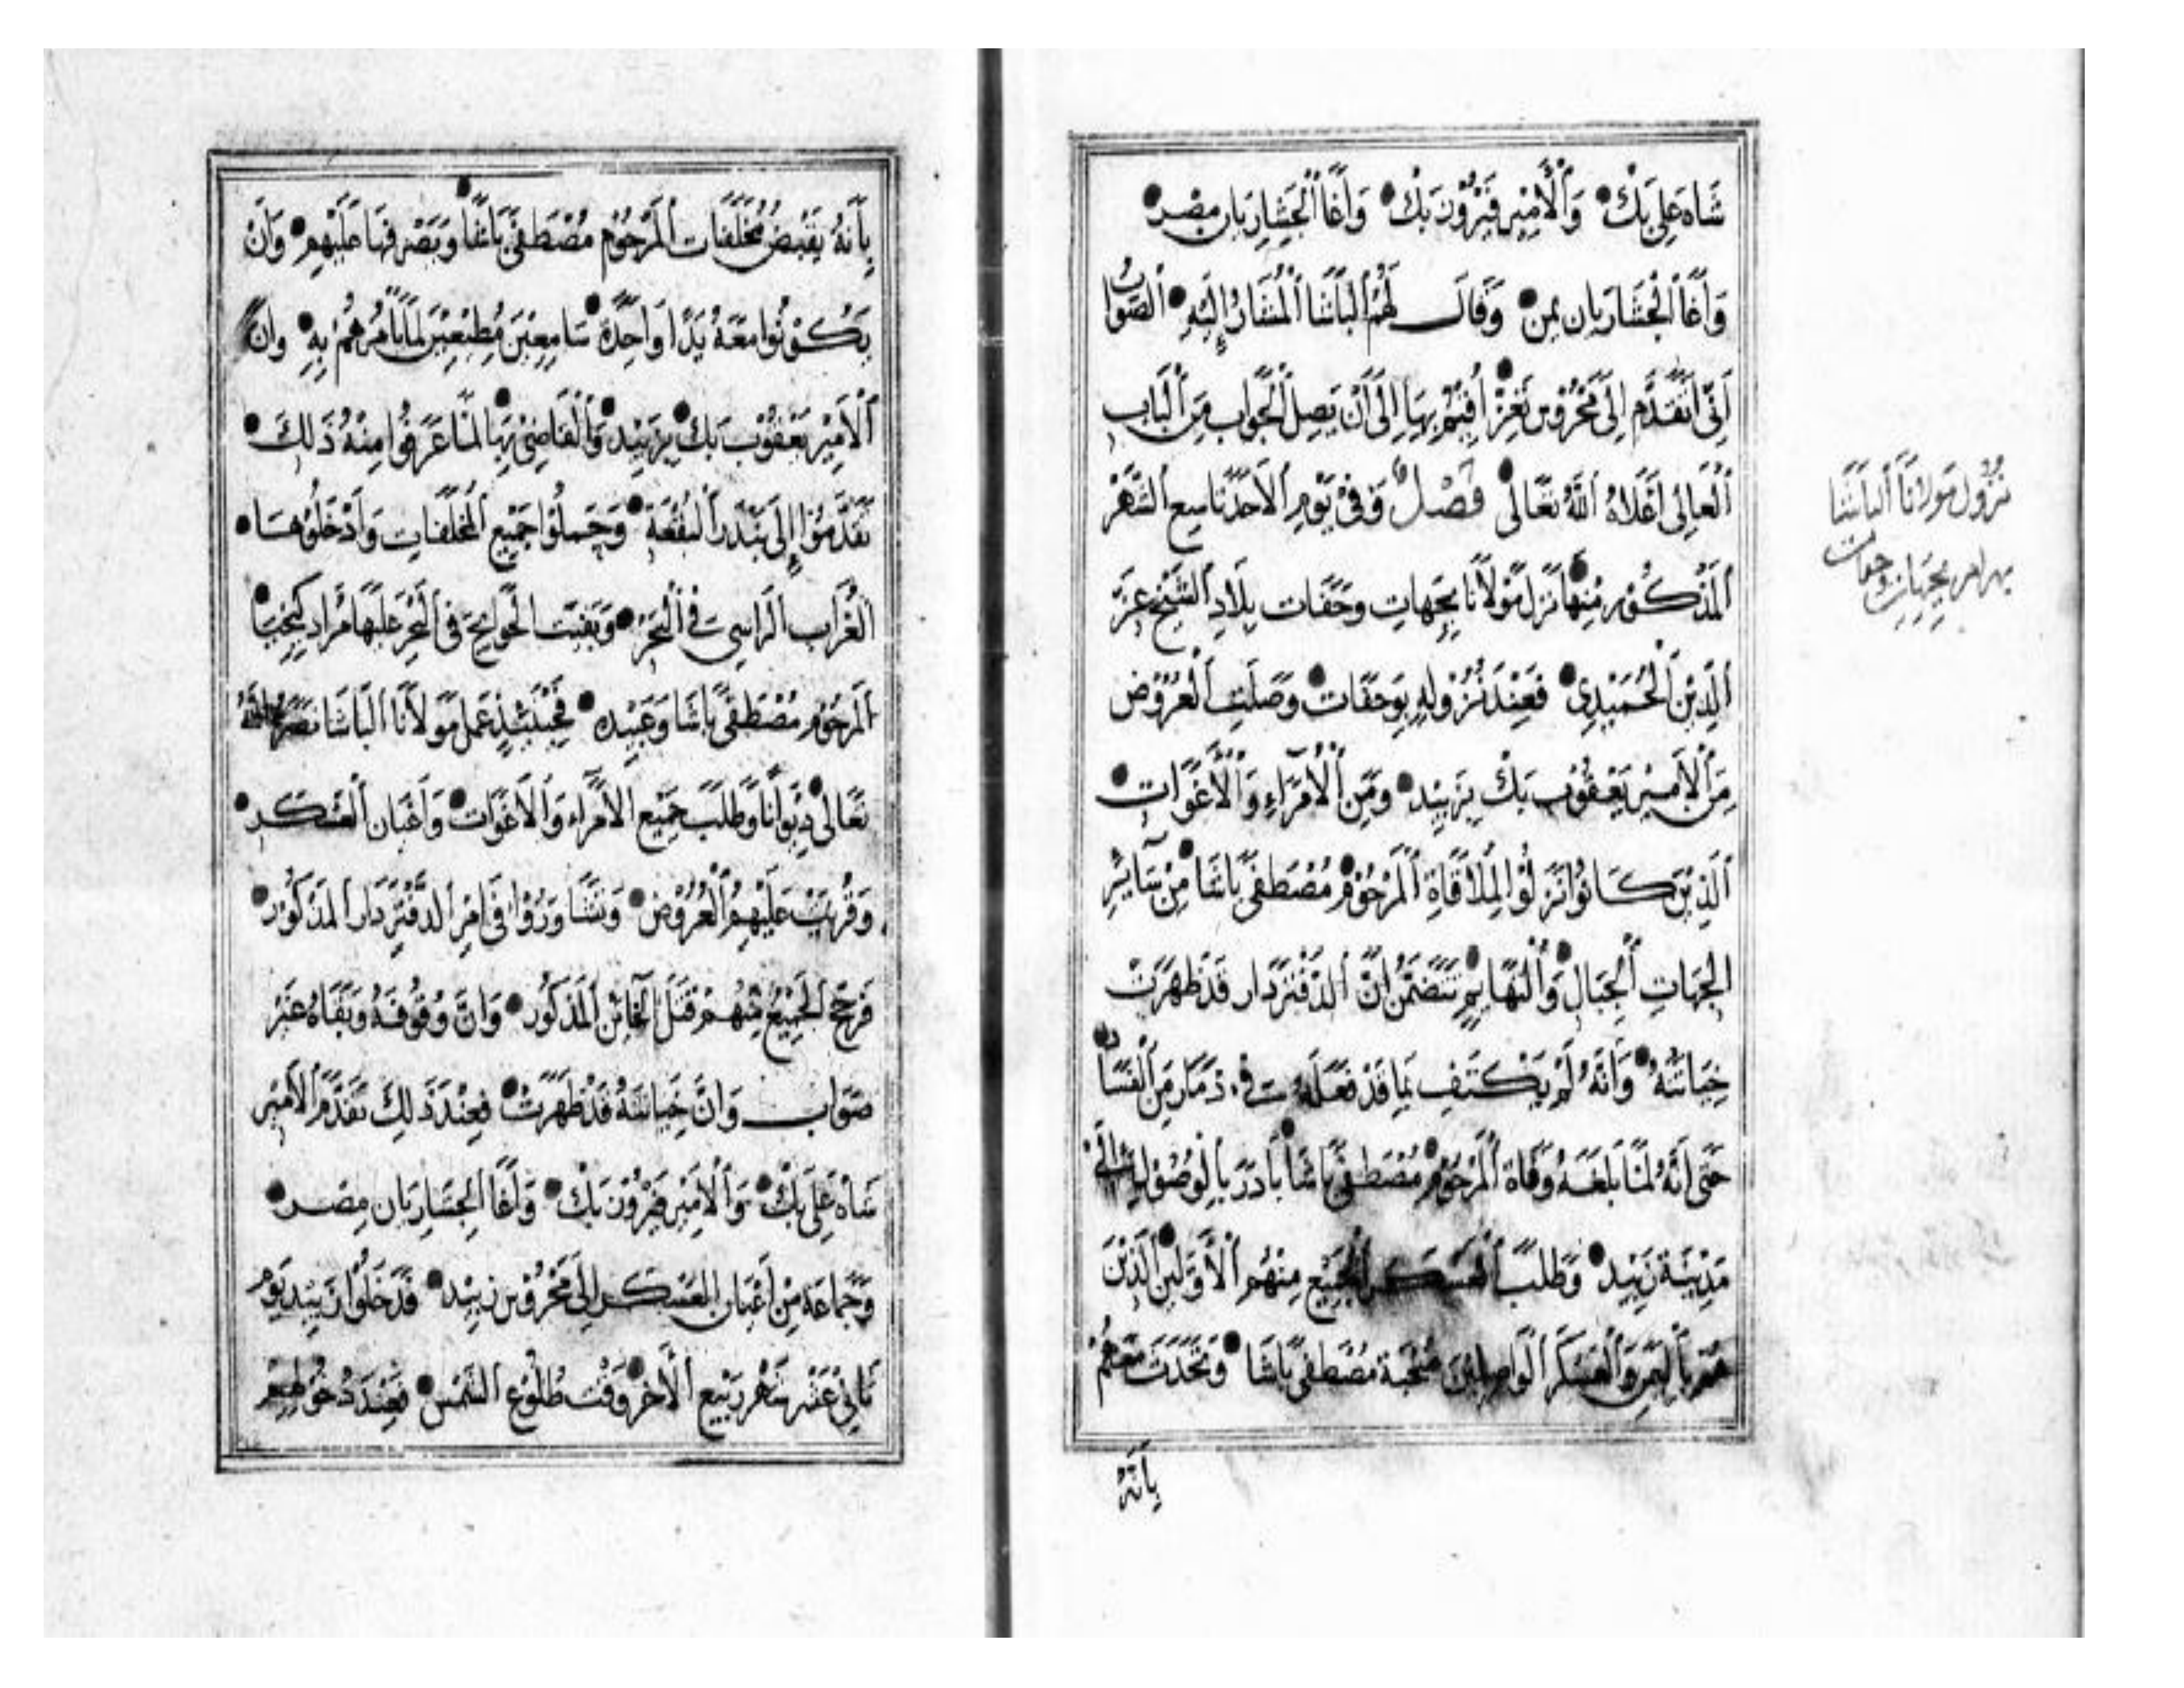 شَاه عَلِي بَكْ وَالْأَمِيْر فَيْرُوْز بَكْ وَآغَا الْجَشَارِيَان مِصْر
وَآغَا الْجَشَارِيَان يمن وَقَالَ لَهُمْ الْبَاشَا الْمُشَارُ إِلَيْهِ الصَّوَابُ
اَنِّيْ اَتَقَدَّم إِلَى مَحْرُوْس تَعِزْ أُقِيْمُ بِهَا إِلَى اَنْ يَصِلَ الْجَوَاب مِنَ الْبَاب
الْعَالِي اَعْلَاهُ اللهُ تَعَالَى فَصْلٌ وَفِيْ يَوْمِ الْاَحَدْ تَاسِع الشَّهْر
الْمَذْكُوْر مِنْهَا نَزَلَ مَوْلَانَا بِجِهَاتِ وحَقَات بِلَادِ الشَّيْخ عِزّ
الدِّيْن الْحُمَيْدِي فَعِنْدَ نُزُوْلِهِ بِوحَقَات وَصَلَتِ الْعُرُوْض
مِنَ الْاَمِيْر يَعْقُوْب بَكْ بِزَبِيْد وَمِنَ الْأُمَرَاءِ وَالْأَغَوَات
الَّذِيْنَ كَانُوْا نَزَلُوْا لِمُلَاقَاةِ الْمَرْحُوْم مُصْطَفَى بَاشَا مِنْ سَآئِرِ
الجِهَاتِ الْجِبَال وَالتَّهَائِمِ تَتَضَمَّنُ اَنَّ الدَّفْتَرْدَار قَدْ ظَهَرَتْ
خِيَانَتُهُ وَاَنَّهُ لَمْ يَكْتَفِ بِمَا قَدْ فَعَلَهُ فِي ذَمَار مِنَ الْفَسَادِ
حَتَّى اَنَّهُ لَمَّا بَلَغَهُ وَفَاة الْمَرْحُوْم مُصْطَفَى بَاشَا بَادَرَ بِالْوُصُوْلِ إِلَى
مَدِيْنَة زَبِيْد وَطَلَبَ الْعَسْكَر الْجَمِيْع مِنْهُم الْأَوَّلِيْنَ الَّذِيْنَ
هُمْ بِالْيَمَنِ وَالْعَسْكَر الْوَاصِلِيْنَ صُحْبَة مُصْطَفَى بَاشَا وَتَحَدَّثَ مَعَهُمْ
بِاَنَّهُ
نُزُول مَولَانَا البَاشَا
بجهات وحقات
بِاَنَّهُ يَقْبِضُ مُخَلَّفَات الْمَرْحُوْم مُصْطَفَى بَاشَا وَيَصْرِفُهَا عَلَيْهِم وَاَنْ
يَكُوْنُوا مَعَهُ يَدًا وَاحِدَةً سَامِعِيْنَ مُطِيْعِيْنَ لِمَا يَأْمُرُهُمْ بِهِ وَانَّ
الْاَمِيْر يَعْقُوْب بَكْ بِزَبِيْد وَالْقَاضِيْ بِهَا لَمَّا عَرَفُوا مِنْهُ ذَلِكَ
تَقَدَّمُوْا إِلَى بَنْدَر الْبُقْعَةِ وَحَمَلُوْا جَمِيْع الْمُخَلَّفَاتِ وَاَدْخَلُوْهَا
الْغُرَاب الرَّاسِي فِي الْبَحْر وَبَقِيَت الْحَوَايِج فِي الْبَحْر عَلَيْهَا مُرَاد كِيخِيَا
الْمَرْحُوْم مُصْطَفَى بَاشَا وَعَبِيْده فَحِيْنَئِذٍ عَمِلَ مَوْلَانَا الْبَاشَا نَصَرَهُ اللهُ
تَعَالَى دِيْوَانًا وَطَلَبَ جَمِيْع الْاُمَرَاء وَالْاَغَوَات وَاَعْيَان الْعَسْكَر
وَقُرِيَتْ عَلَيْهِمُ الْعُرُوْض وَتَشَاوَرُوْا فِي اَمْرِ الدَّفْتَرْدَار الْمَذْكُوْر
فَرَجَّحَ الْجَمِيْعُ مِنْهُمْ قَتْلَ الْخَائِن الْمَذْكُوْر وَانَّ وُقُوْفَهُ وَبَقَاهُ غَيْرُ
صَوَاب وَانَّ خِيَانَتَهُ قَدْ ظَهَرَتْ فَعِنْدَ ذَلِكَ تَقَدَّمَ الْاَمِيْر
شَاه عَلِي بَكْ وَالْاَمِيْر فَيْرُوْز بَكْ وَآغَا الجَشَارِيَان مِصْر
وَجَمَاعَة مِنْ اَعْيَان الْعَسْكَر إِلَى مَحْرُوْس زَبِيْد فَدَخَلُوْا زَبِيْد يَوْم
ثَانِيْ عَشَر شَهْر رَبِيْع الْاَخِر وَقْت طُلُوْع الشَّمْس فَعِنْدَ دُخُوْلِهِمْ